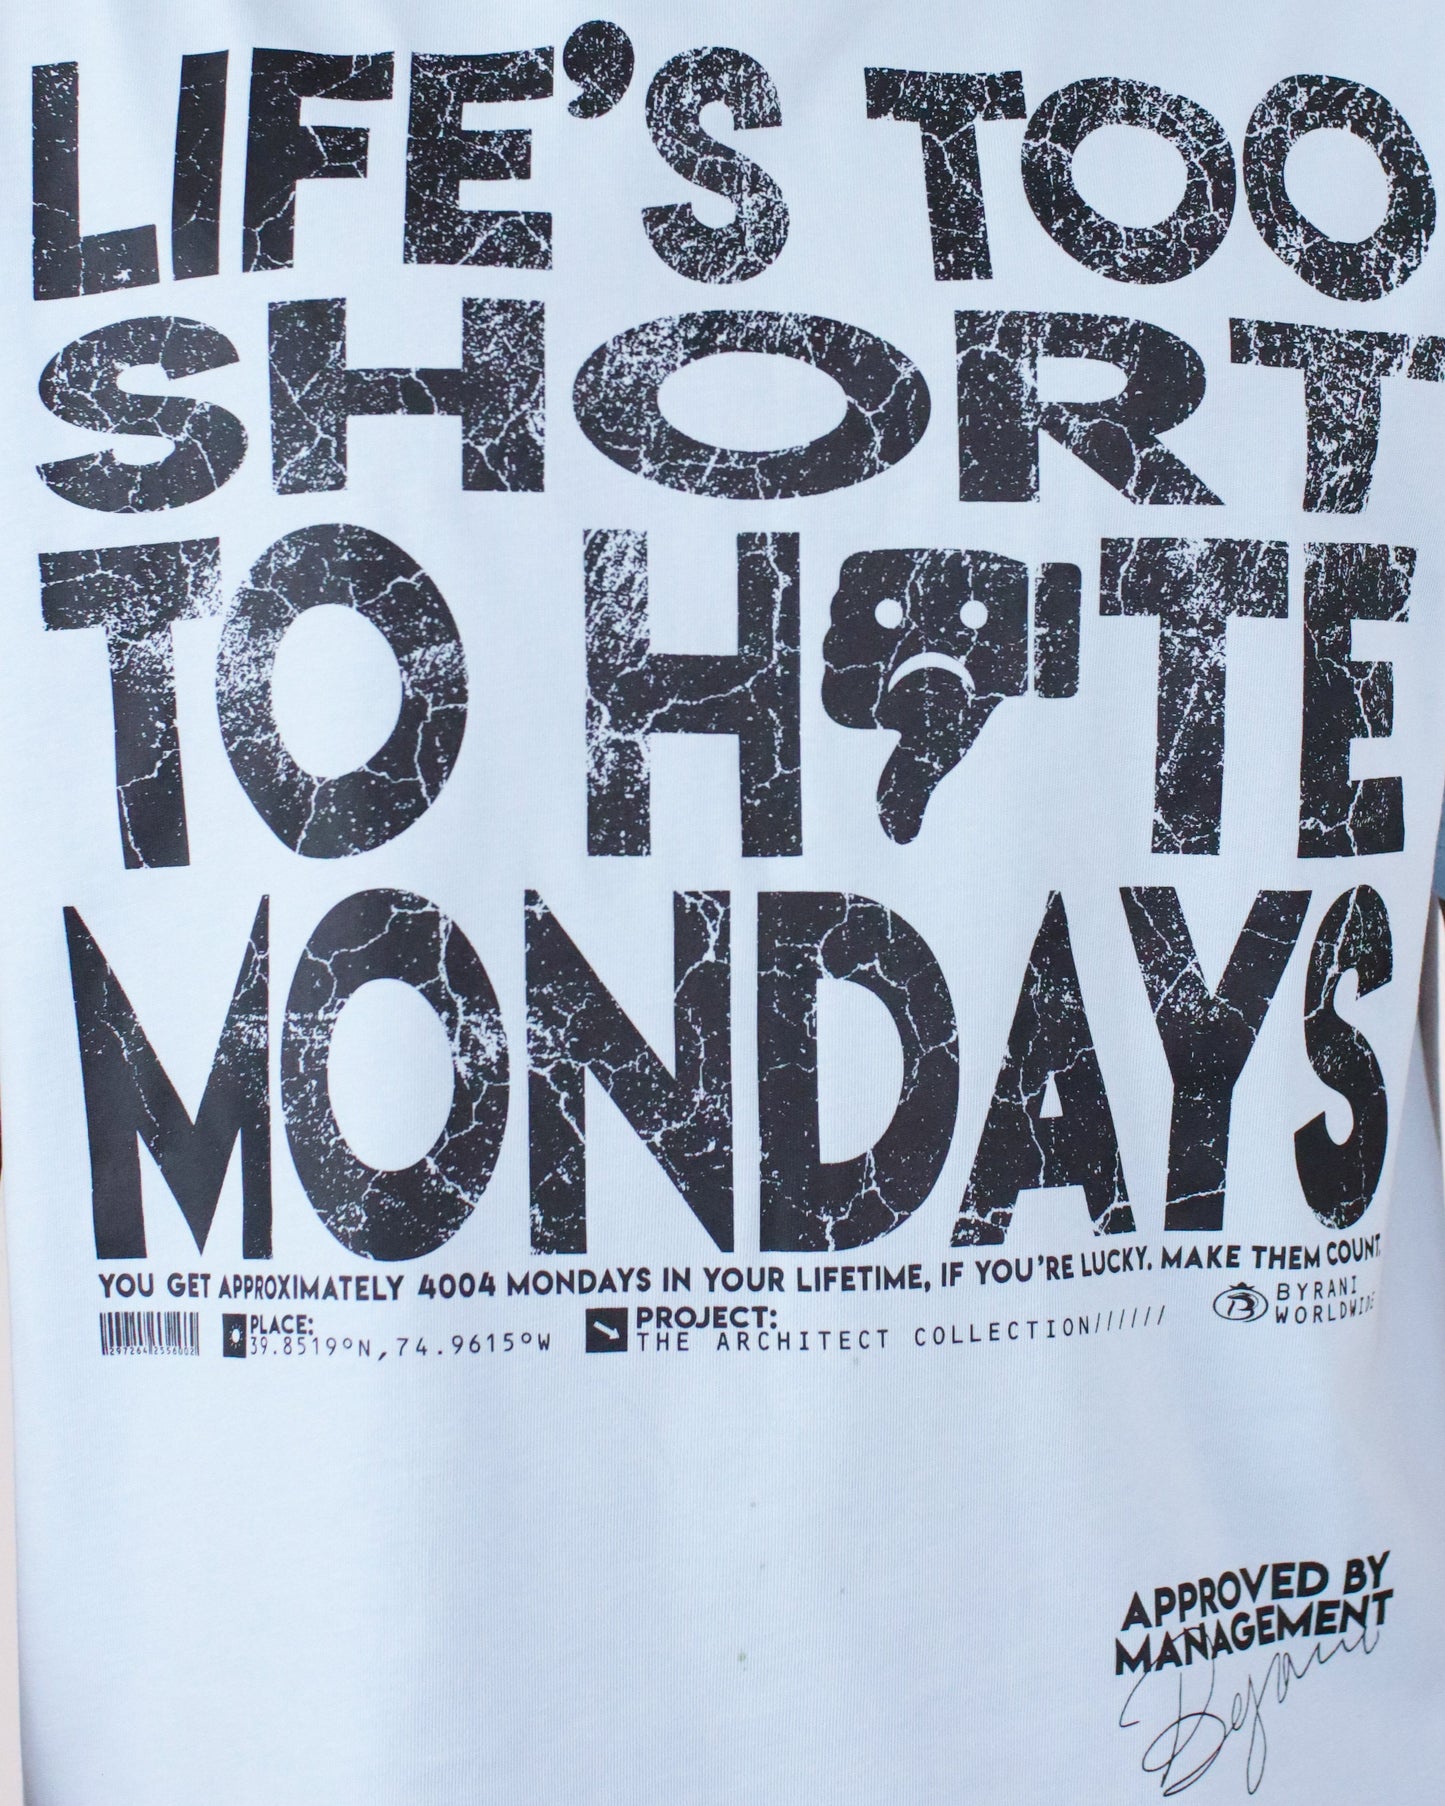 LIFE'S TOO
SHORT
TO H TE
MONDAYS
YOU GET APPROXIMATELY 4004 MONDAYS IN YOUR LIFETIME, IF YOU'RE LUCKY. MAKE THEM COUNT.
PLACE:
39.8519°N, 74.9615°W
PROJECT:
THE ARCHITECT COLLECTION//////
BYRANI
WORLDWIDE
APPROVED BY
MANAGEMENT
Byrani